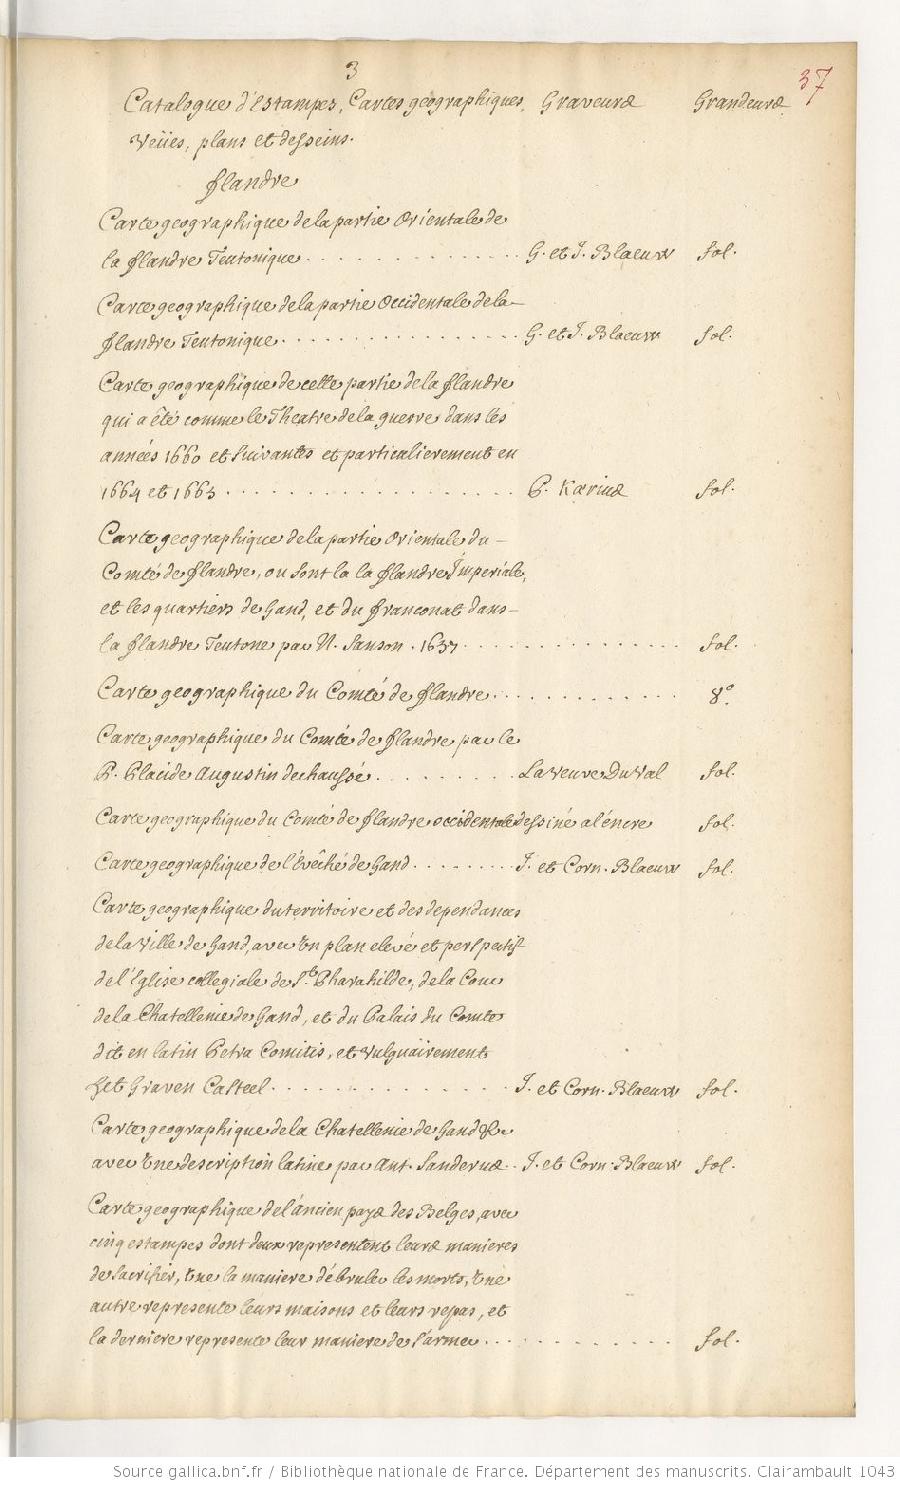 3
37
Catalogue d'Estampes, Cartes geographiques, Graveurs Grandeurs
Veües, plans et desseins.
flandre
Carte geographique de la partie Orientale de
la flandre Teutonique . . . . . . . . . . . . . G. et J. Blaeuw fol.
Carte geographique de la partie Occidentale de la
flandre Teutonique . . . . . . . . . . . . . . G. et J. Blaeuw fol.
Carte geographique de cette partie de la flandre
qui a été comme le Theatre de la guerre dans les
années 1660 et suivantes et particulierement en
1664 et 1663 . . . . . . . . . . . . . . . . . P. Karius fol.
Carte geographique de la partie Orientale du
Comté de flandre, ou sont la la flandre Imperiale,
et les quartiers de Gand, et du franconat dans
la flandre Teutone par N. Sanson . 1657 . . . . . . . . . . . . . . fol.
Carte geographique du Comté de flandre . . . . . . . . . . . . 8°.
Carte geographique du Comté de flandre par le
P. Placide Augustin dechaussé . . . . . . . . . La veuve Du Val fol.
Carte geographique du Comté de flandre occidentale dessiné a l'encre fol.
Carte geographique de l'évêché de Gand . . . . . . . . J. et Corn. Blaeuw fol.
Carte geographique du territoire et des dependances
de la ville de Gand, avec un plan elevé et perspectif
de l'Eglise collegiale de Ste Pharahilde, de la Cour
de la Chatellenie de Gand, et du Palais du Comte
dit en latin Petra Comitis, et vulguairement
Het Graven Casteel . . . . . . . . . . . . . . J. et Corn. Blaeuw fol.
Carte geographique de la Chatellenie de Gand &c
avec une description latine par Ant. Sanderus . . J. et Corn. Blaeuw fol.
Carte geographique de l'ancien pays des Belges, avec
cinq estampes dont deux representent leurs manieres
de sacrifier, une la maniere de bruler les morts, une
autre represente leurs maisons et leurs repas, et
la derniere represente leur maniere de s'armer . . . . . . . . . . . . fol.
Source gallica.bnf.fr / Bibliothèque nationale de France. Département des manuscrits. Clairambault 1043